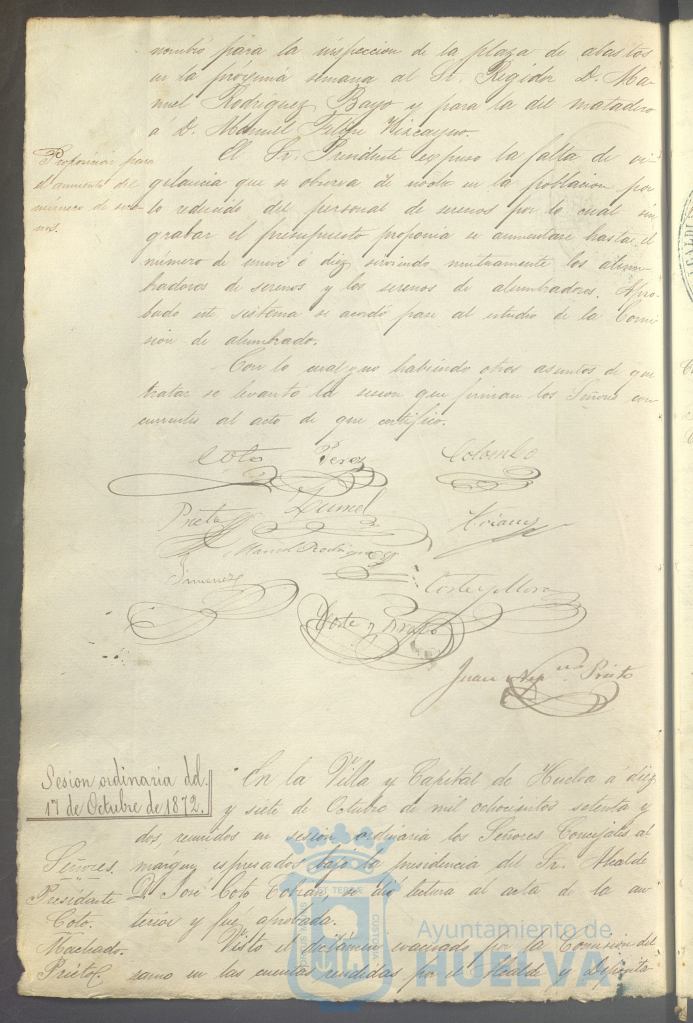 nombró para la inspeccion de la plaza de abastos
en la próxima semana al Sr. Regidor D. Ma-
nuel Rodriguez Bayo y para la del matadero
á D. Manuel Felipe Vizcayno.
Proposicion para
el aumento del
número de sere-
nos.
El Sr. Presidente espuso la falta de vi-
gilancia que se observa de noche en la poblacion por
lo reducido del personal de serenos por lo cual sin
grabar el presupuesto proponia se aumentase hasta el
número de nueve ó diez sirviendo mutuamente los alum-
bradores de serenos y los serenos de alumbradores. Apro-
bado este sistema se acordó pase al estudio de la Comi-
sion de alumbrado.
Con lo cual y no habiendo otros asuntos de que
tratar se levantó la sesion que firman los Señores con-
currentes al acto de que certifico.
Coto Perez Colombo
Prieto
Manuel Rodriguez
Jimenez Corte y Mora
Corte y Bravo
Juan Prieto
Sesion ordinaria del
17 de Octubre de 1872.
En la Villa y Capital de Huelva á diez
y siete de Octubre de mil ochocientos setenta y
dos, reunidos en sesion ordinaria los Señores Concejales al
margen espresados bajo la presidencia del Sr. Alcalde
D. José Coto Cobian, se dió lectura al acta de la an-
terior y fué aprobada.
Señores.
Presidente
Coto.
Machado.
Prieto C.
Visto el dictámen evacuado por la Comision del
ramo en las cuentas rendidas por el Alcalde y Deposita-
Ayuntamiento de
HUELVA